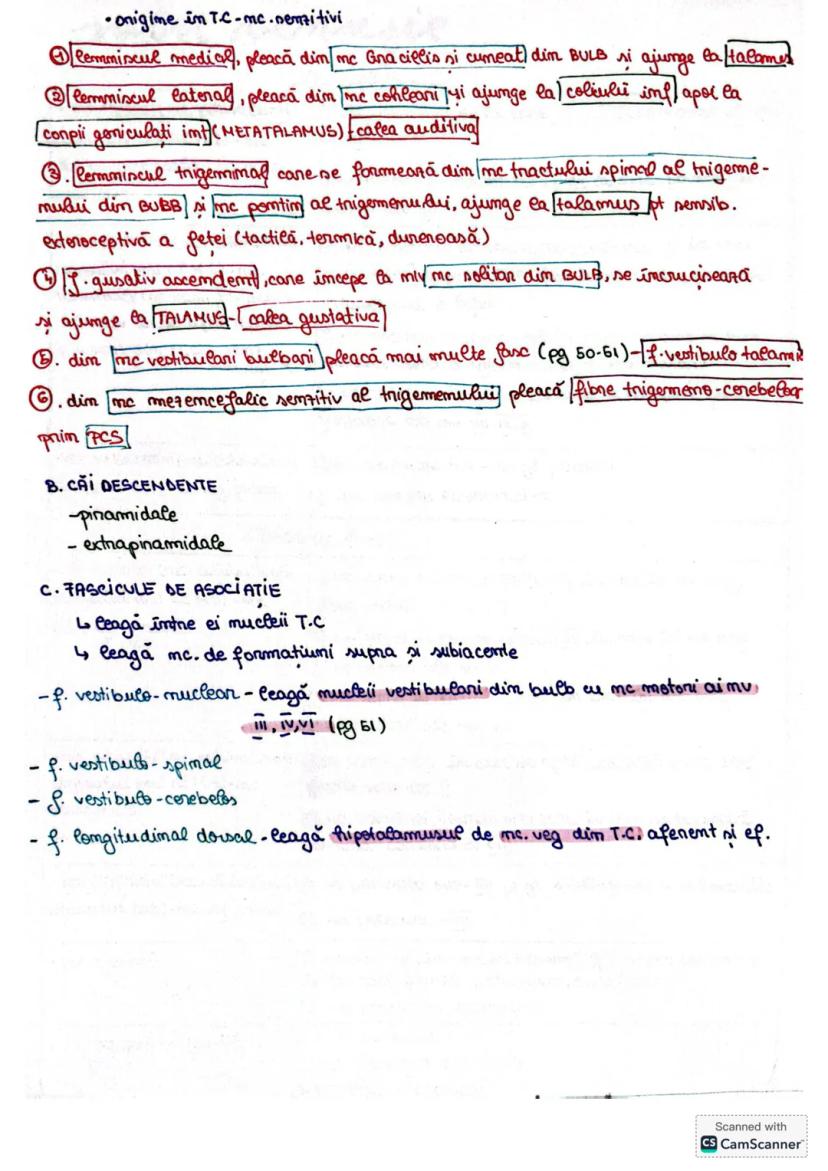 • origine în T.C - nc. senzitivi
① lemniscul medial, pleacă din nc Gracilis și cuneat din BULB și ajunge la talamus
② lemniscul lateral, pleacă din nc cohleari și ajunge la coliculii inf apoi la
corpii geniculați int (METATALAMUS) calea auditivă
③. lemniscul trigeminal care se formează din nc tractului spinal al trigeme-
nului din BUBB și nc pontin al trigemenului, ajunge la talamus pt sensib.
exteroceptivă a feței (tactilă, termică, dureroasă)
④ f. gusativ ascendent, care începe la niv nc solitar din BULB, se încrucișează
și ajunge la TALAMUS - calea gustativă
⑤. din nc vestibulari bulbari pleacă mai multe fasc (pg 50-51) - f. vestibulo talamic
⑥. din nc mezencefalic senzitiv al trigemenului pleacă fibre trigemeno-cerebeloar
prin PCS
B. CĂI DESCENDENTE
- piramidale
- extrapiramidale
C. FASCICULE DE ASOCIAȚIE
↳ leagă între ei nucleii T.C
↳ leagă nc. de formațiuni supra și subiacente
- f. vestibulo-nuclear - leagă nucleii vestibulari din bulb cu nc motori ai nv
III, IV, VI (pg 51)
- f. vestibulo-spinal
- f. vestibulo-cerebelos
- f. longitudinal dorsal - leagă hipotalamusul de nc. veg din T.C. aferent și ef.
Scanned with
CS CamScanner